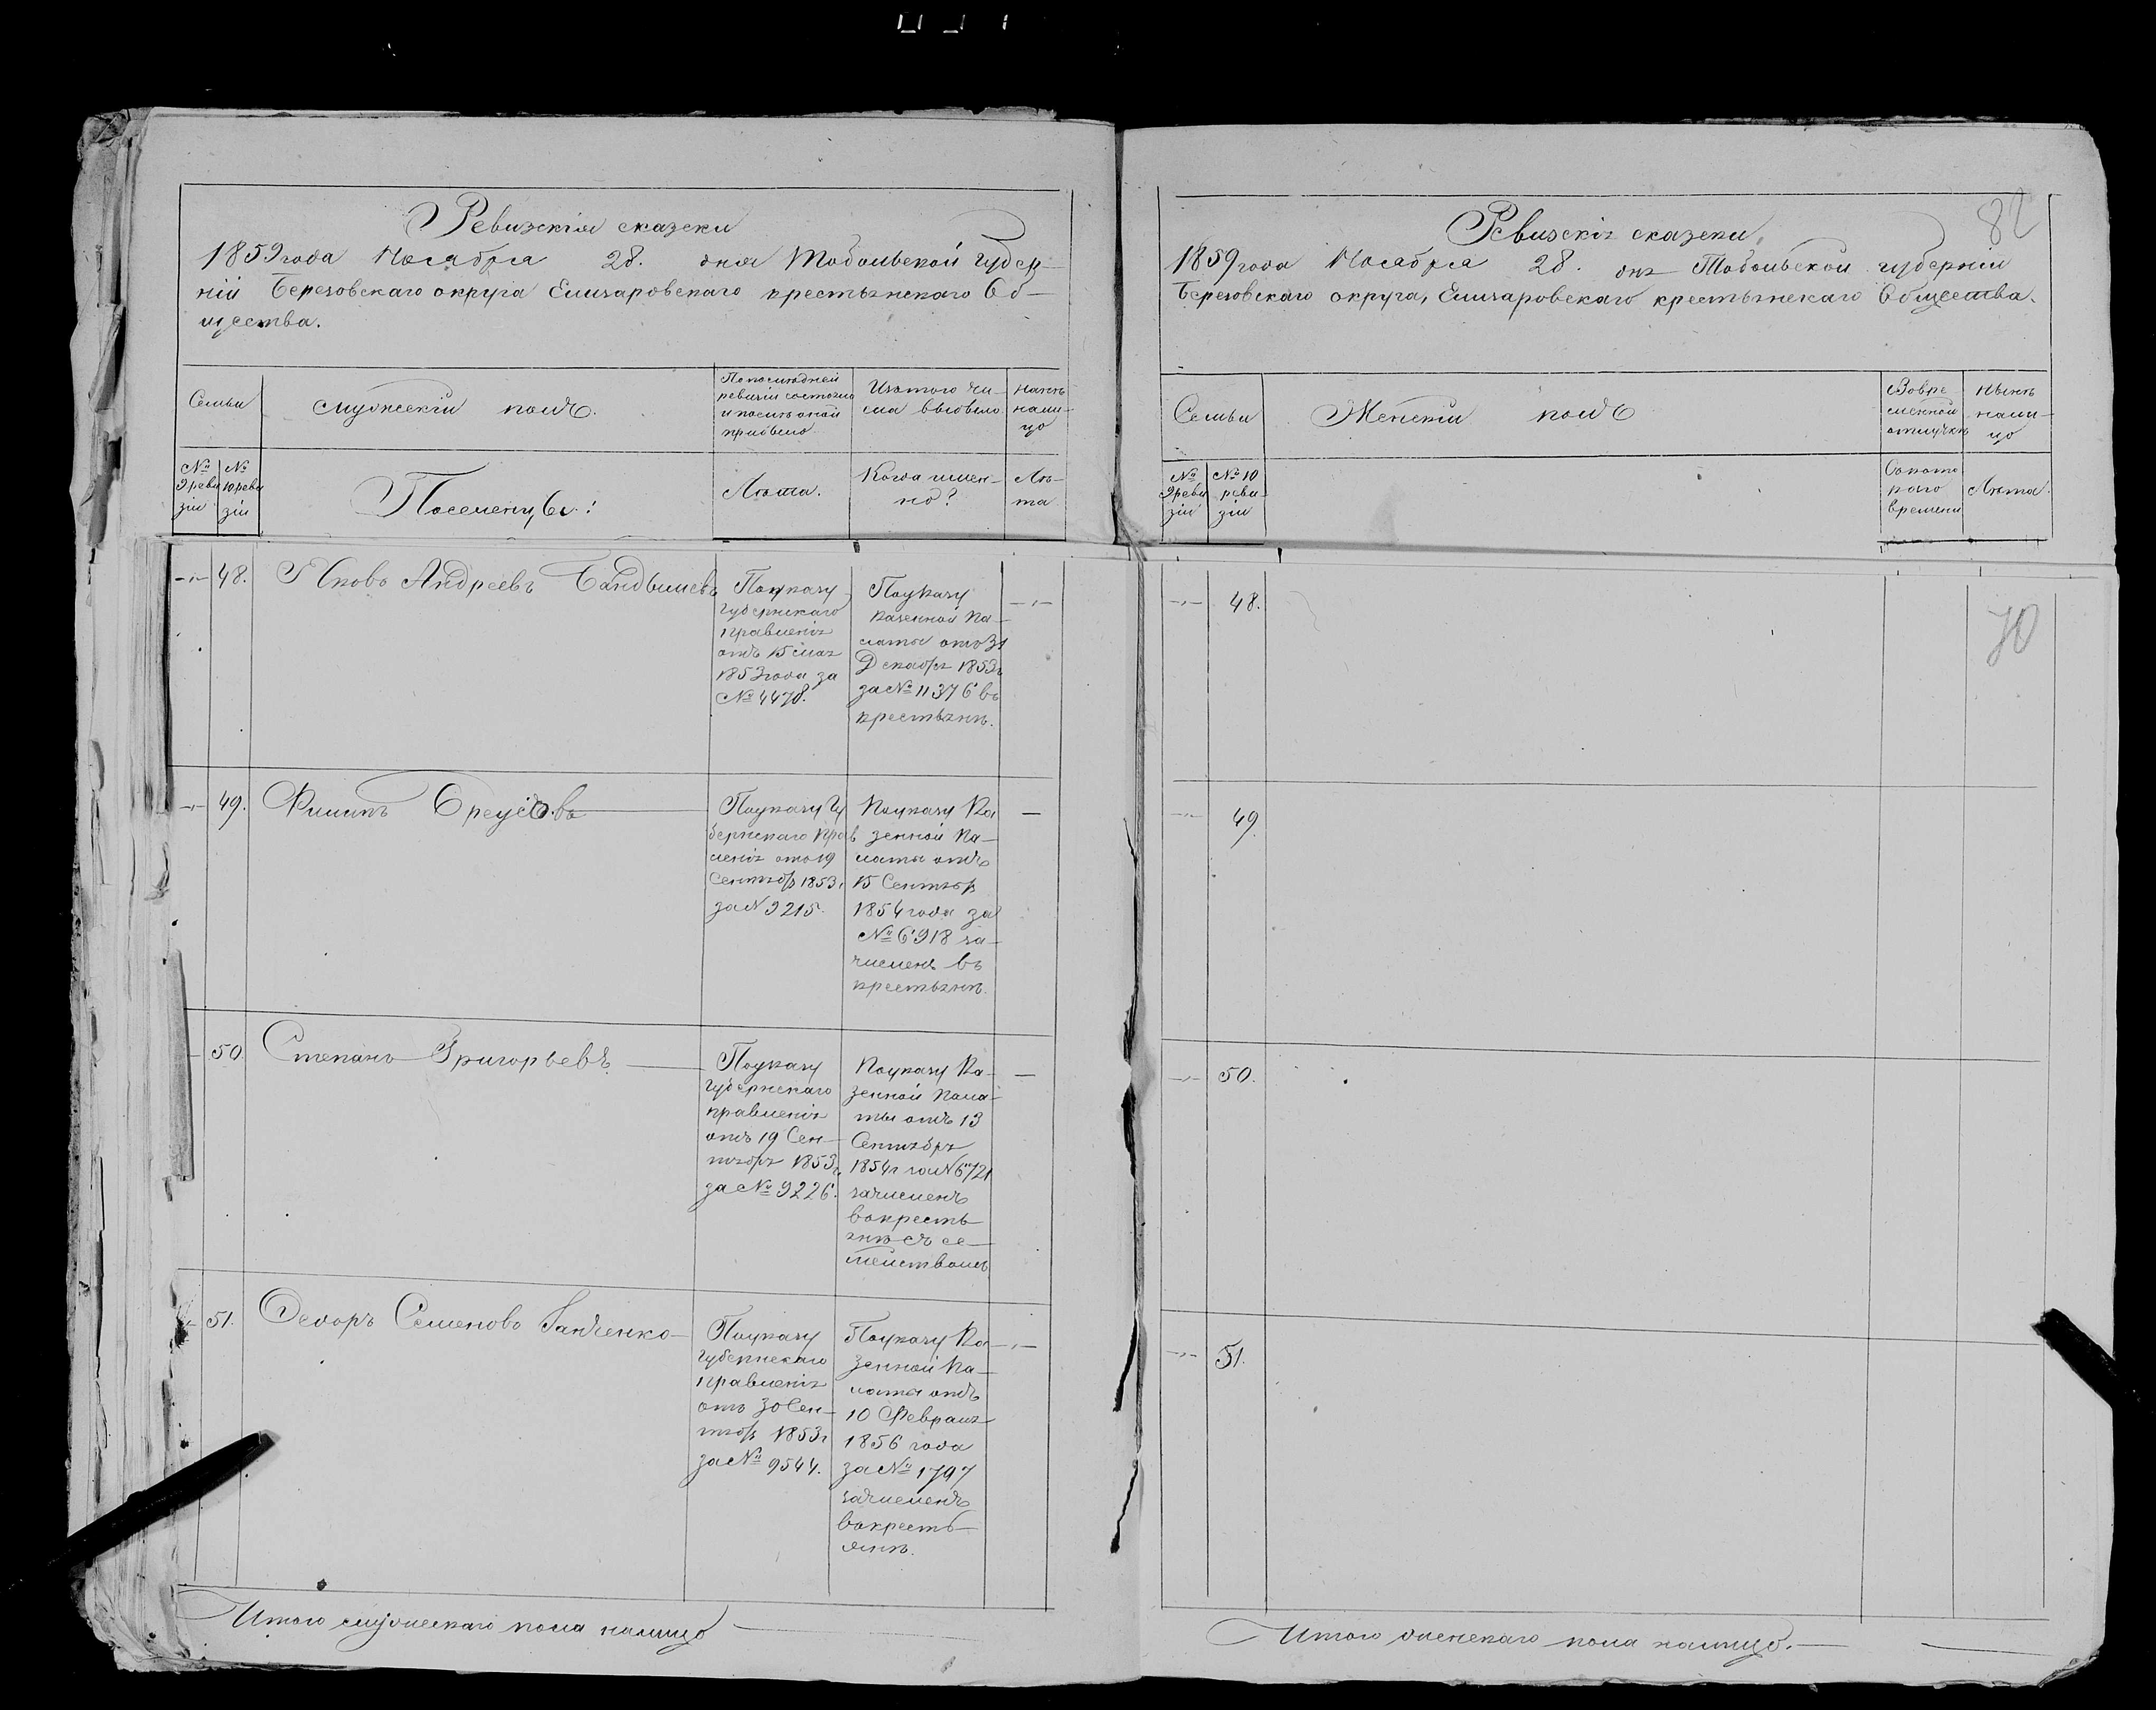 Ревизскія сказки
1859 года Ноября 28. дня Тобольской Губер-
ніи Березовскаго округа Елизаровскаго крестьянскаго Об-
щества.
Семьи
Мужескій полъ.
По последней
ревизіи состояло
и после оной
прибыло
Изтого чи-
сла выбыло
Нынѣ
нали-
цо
№
9 реви
зіи
№
10 реви
зіи
Поселенцы:
Лѣта.
Когда имен-
но?
Лѣ-
та
48.
Яковъ Андреевъ
Поуказу
Губернскаго
правленія
отъ 15 мая
1853 года за
№ 4478.
Поуказу
казенной Па-
латы отъ 31
Декабря 1853 г
за № 11376 въ
крестьяне.
49.
Филипъ
Поуказу Гу
бернскаго Прав
ленія отъ 19
Сентябр 1853 г
за № 9215.
Поуказу Ка
зенной Па-
латы отъ
15 Сентябр
1854 года за
№ 6918 за-
численъ въ
крестьяне.
50.
Степанъ Григорьевъ.
Поуказу
Губернскаго
правленія
отъ 19 Сен-
тября 1853 г
за № 9226.
Поуказу Ка-
зенной Пала-
ты отъ 13
Сентября
1854 г за № 6721
зачисленъ
вкресть-
яне съ се-
мействомъ
51.
Федоръ Семеновъ Ганченко
Поуказу
Губернскаго
Правленія
отъ 30 Сен-
тябр 1853 г
за № 9544.
Поуказу Ка-
зенной Па-
латы отъ
10 Февраля
1856 года
за № 1797
зачисленъ
вкресть-
яне.
Итого мужескаго пола налицо
82
Ревизскія сказки
1859 года Ноября 28. дня Тобольской губерніи
Березовскаго округа, Елизаровскаго крестьянскаго Общества.
Семьи
Женскій полъ
Вовре
менной
отлучкѣ
Нынѣ
нали-
цо
№
9 реви
зіи
№ 10
реви-
зіи
Ското
раго
времени
Лѣта.
48.
70
49
50.
51.
Итого женскаго пола налицо.